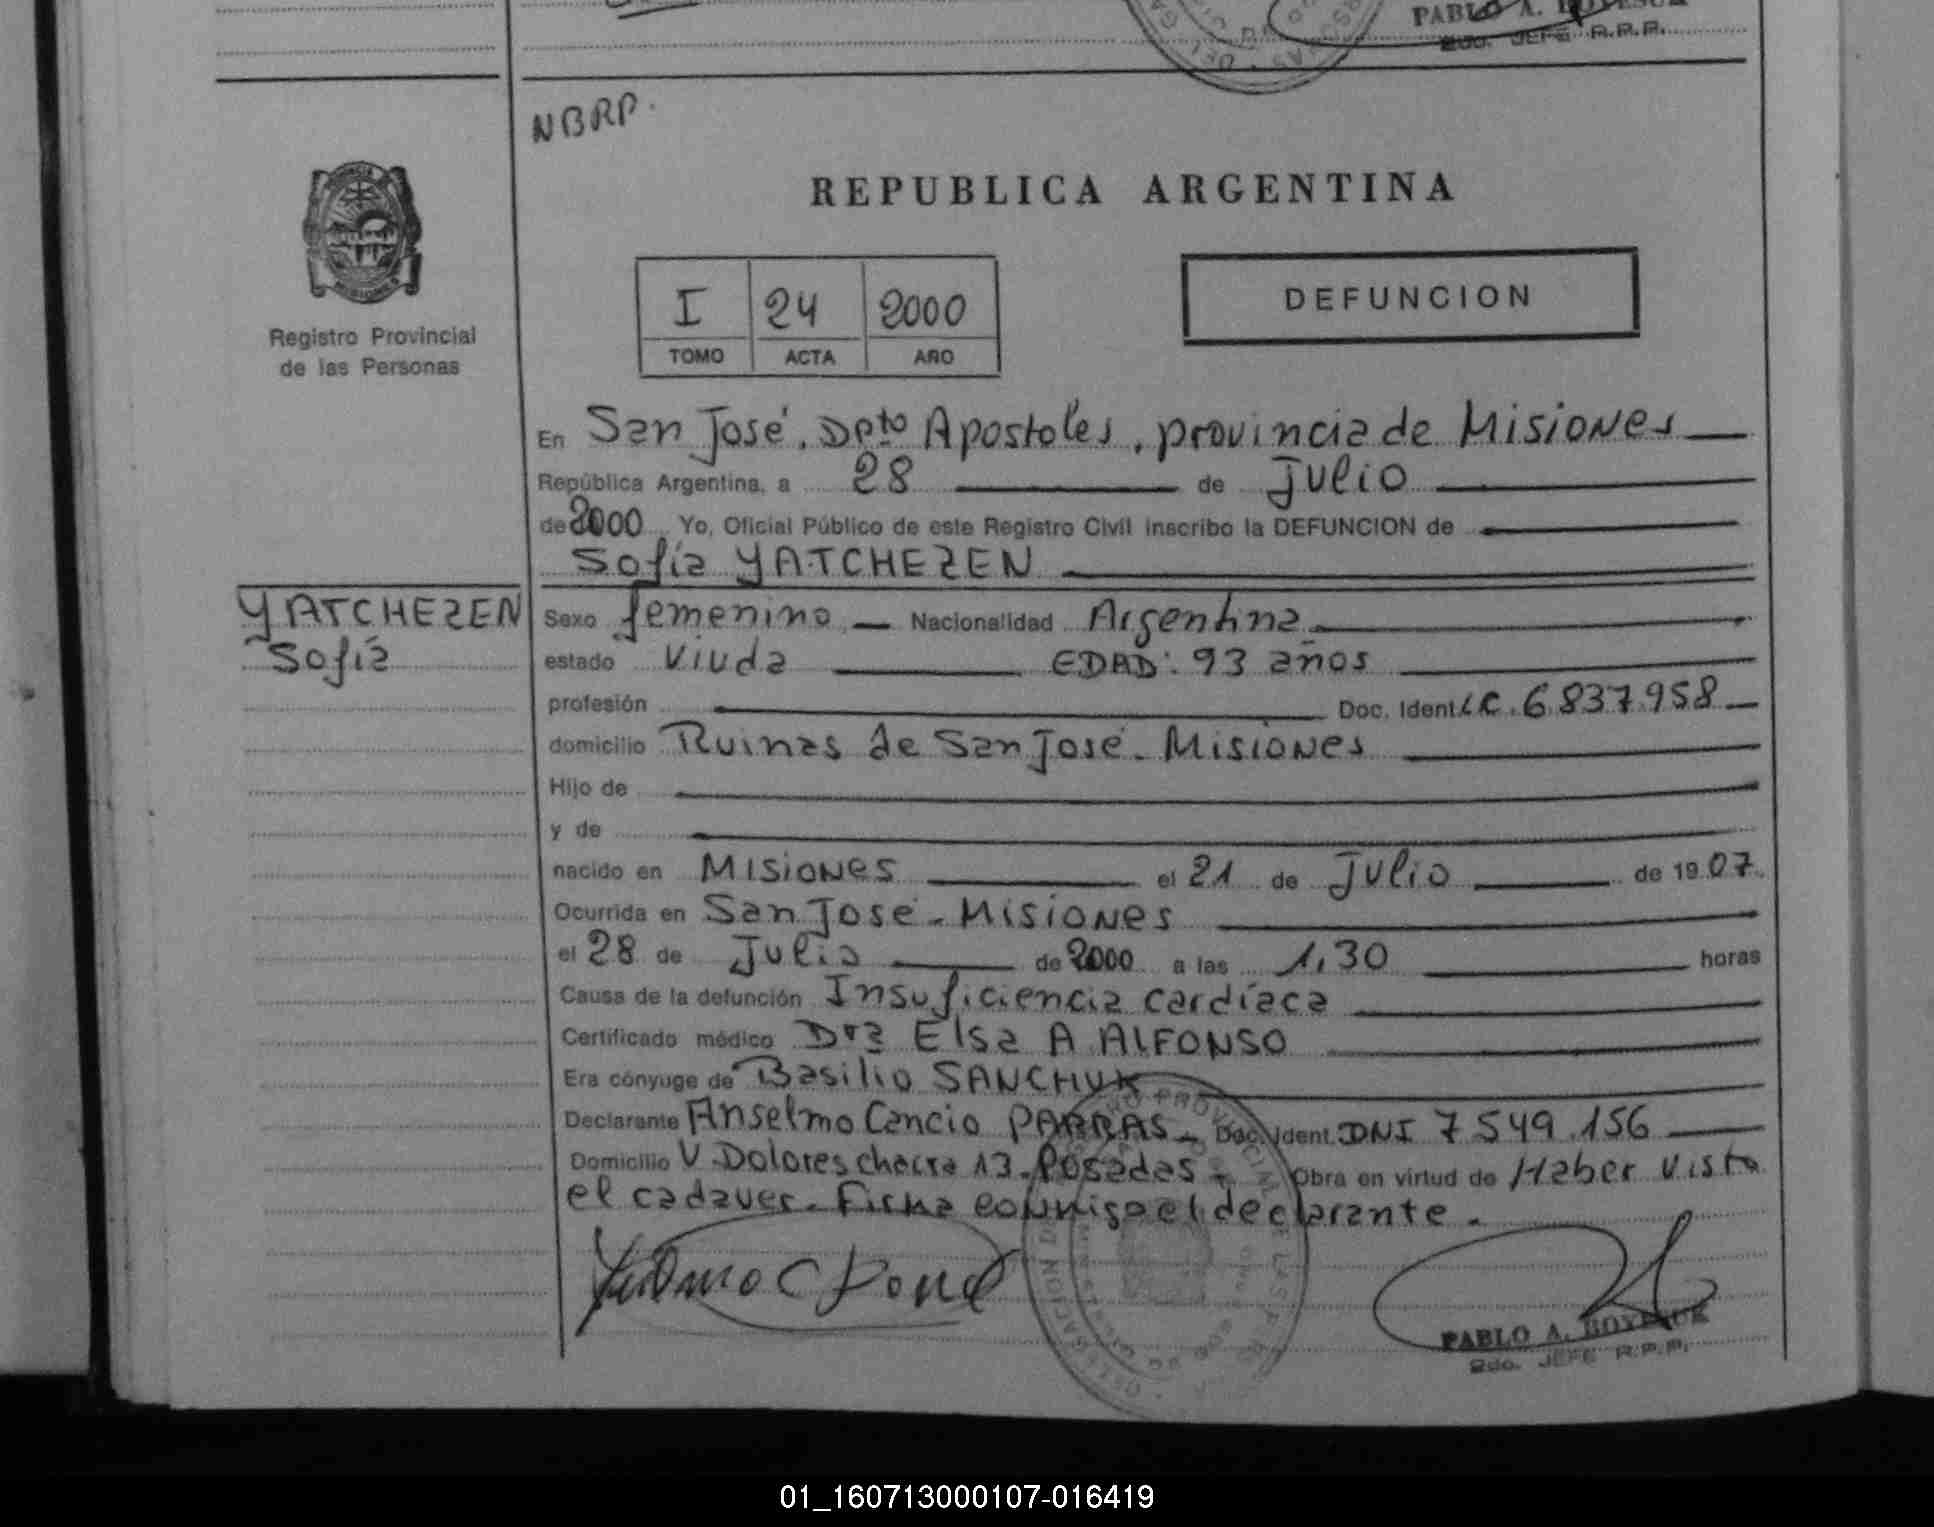 PABLO A.
2do. JEFE R.P.P.
NBRP.
REPUBLICA ARGENTINA
Registro Provincial
de las Personas
I 24 2000
TOMO ACTA AÑO
DEFUNCION
En San José, Dpto Apostoles, provincia de Misiones
República Argentina, a 28 de Julio
de 2000 Yo, Oficial Público de este Registro Civil inscribo la DEFUNCION de
Sofía YATCHEZEN
YATCHEZEN
Sofía
Sexo femenino Nacionalidad Argentina
estado Viuda EDAD: 93 años
profesión Doc. Ident LC. 6.837.958
domicilio Ruinas de San José - Misiones
Hijo de
y de
nacido en Misiones el 21 de Julio de 1907
Ocurrida en San José - Misiones
el 28 de Julio de 2000 a las 1,30 horas
Causa de la defunción Insuficiencia cardíaca
Certificado médico Dra Elsa A ALFONSO
Era cónyuge de Basilio SANCHUK
Declarante Anselmo Cancio PARRAS - Doc. Ident. DNI 7.549.156
Domicilio V. Dolores chacra 13 - Posadas - Obra en virtud de Haber visto
el cadaver - Firma conmigo el declarante -
PABLO A.
2do. JEFE R.P.P.
01_160713000107-016419